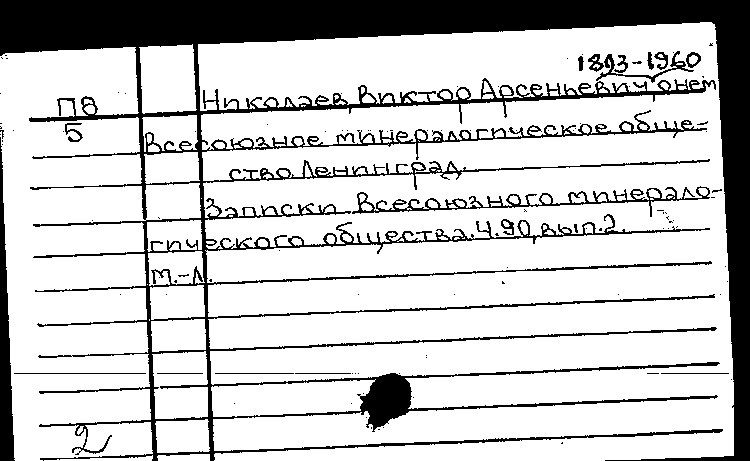 1893-1960
П8 Николаев, Виктор Арсеньевич, о нем
5 Всесоюзное минералогическое обще-
ство. Ленинград.
Записки Всесоюзного минерало-
гического общества. Ч.90, вып.2.
М.-Л.
2